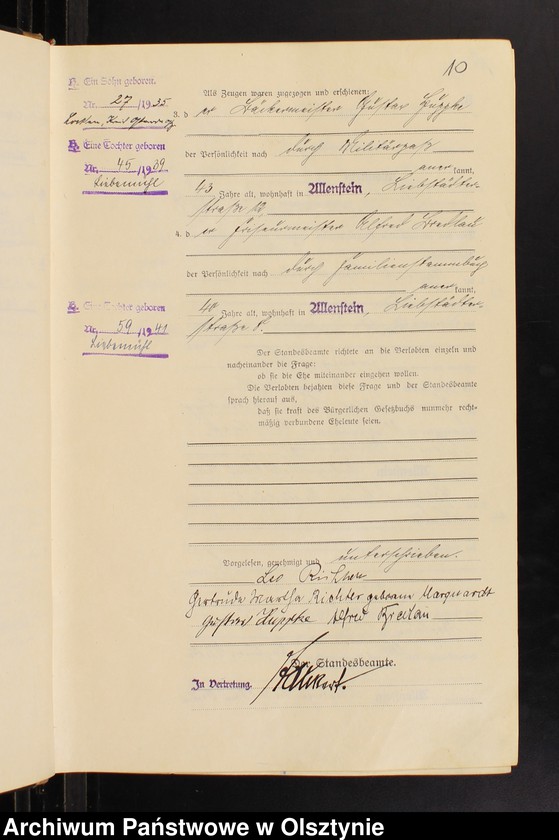 10
Ein Sohn geboren.
Nr. 27 /1935
Eine Tochter geboren
Nr. 45 /1939
Liebemühl
Eine Tochter geboren
Nr. 59 /1941
Liebemühl
Als Zeugen waren zugezogen und erschienen:
3. der Bäckermeister Gustav Huppke
der Persönlichkeit nach durch Militärpaß
anerkannt,
43 Jahre alt, wohnhaft in Allenstein, Liebstädter-
straße 12
4. der Friseurmeister Alfred
der Persönlichkeit nach durch Familienstammbuch
anerkannt,
40 Jahre alt, wohnhaft in Allenstein, Liebstädter-
straße
Der Standesbeamte richtete an die Verlobten einzeln und
nacheinander die Frage:
ob sie die Ehe miteinander eingehen wollen.
Die Verlobten bejahten diese Frage und der Standesbeamte
sprach hierauf aus,
daß sie kraft des Bürgerlichen Gesetzbuchs nunmehr recht-
mäßig verbundene Eheleute seien.
Vorgelesen, genehmigt und unterschrieben.
Leo Richter
Gertrude Martha Richter geborene Marquardt
Gustav Huppke Alfred
Der Standesbeamte.
In Vertretung.
Archiwum Państwowe w Olsztynie